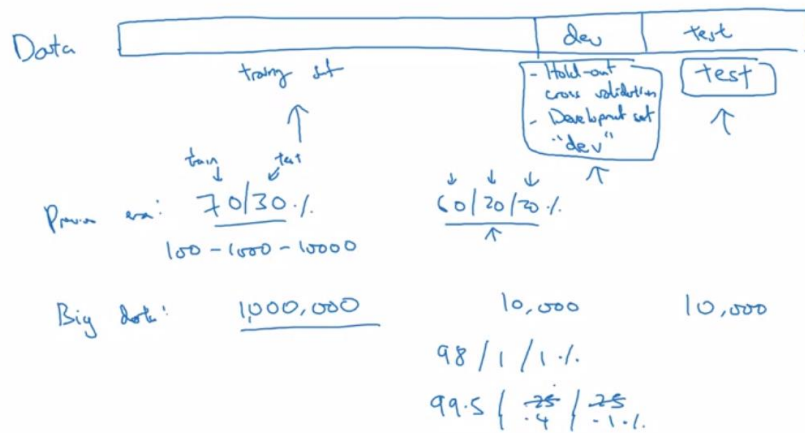 dev test
Data
training set
- Hold-out
cross validation
- Development set
"dev"
test
train test
Previous era: 70/30% 60/20/20%
100-1000-10000
Big data: 1,000,000 10,000 10,000
98/1/1%
99.5/25/25
.4 .1%